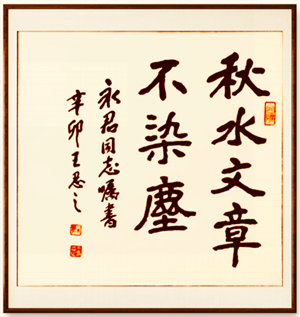 秋水文章
不染塵
永君同志嘱書
辛卯王忍之